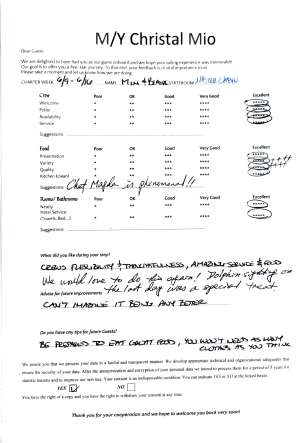 M/Y Christal Mio
Dear Guest,
We are delighted to have had you as our guest onboard and we hope your sailing experience was memorable.
Our goal is to offer you a five star journey. To that end, your feedback is of vital importance to us.
Please take a moment and let us know how we are doing.
CHARTER WEEK: 6/9 - 6/16 NAME: STATEROOM
Crew Poor OK Good Very Good Excellent
Welcome * ** *** **** *****
Polite * ** *** **** *****
Availability * ** *** **** *****
Service * ** *** **** *****
Suggestions
Food Poor OK Good Very Good Excellent
Presentation * ** *** **** *****
Variety * ** *** **** *****
Quality * ** *** **** *****
Kitchen Edward * ** *** **** *****
Suggestions Chef Magda is phenomenal!!
Rooms/ Bathrooms Poor OK Good Very Good Excellent
Ready * ** *** **** *****
Hotel Service * ** *** **** *****
Cleanth. Bed * ** *** **** *****
Suggestions
What did you like during your stay?
CREWS FLEXIBILITY & THOUGHTFULNESS, AMAZING SERVICE & FOOD
We would love to do this again! Dolphin sighting on
Advise for future improvements the last day was a special treat
CAN'T IMAGINE IT BEING ANY BETTER
Do you have any tips for future Guests?
BE PREPARED TO EAT GREAT FOOD, YOU WON'T NEED AS MANY
CLOTHES AS YOU THINK
We assure you that we process your data in a lawful and transparent manner. We develop appropriate technical and organizational safeguards that
ensure the security of your data. After the anonymization and encryption of your personal data we intend to process them for a period of 5 years for
statistic reasons and to improve our services. Your consent is an indispensable condition. You can indicate YES or NO at the ticked boxes.
YES NO
You have the right of a copy and you have the right to withdraw your consent at any time.
Thank you for your cooperation and we hope to welcome you back very soon!